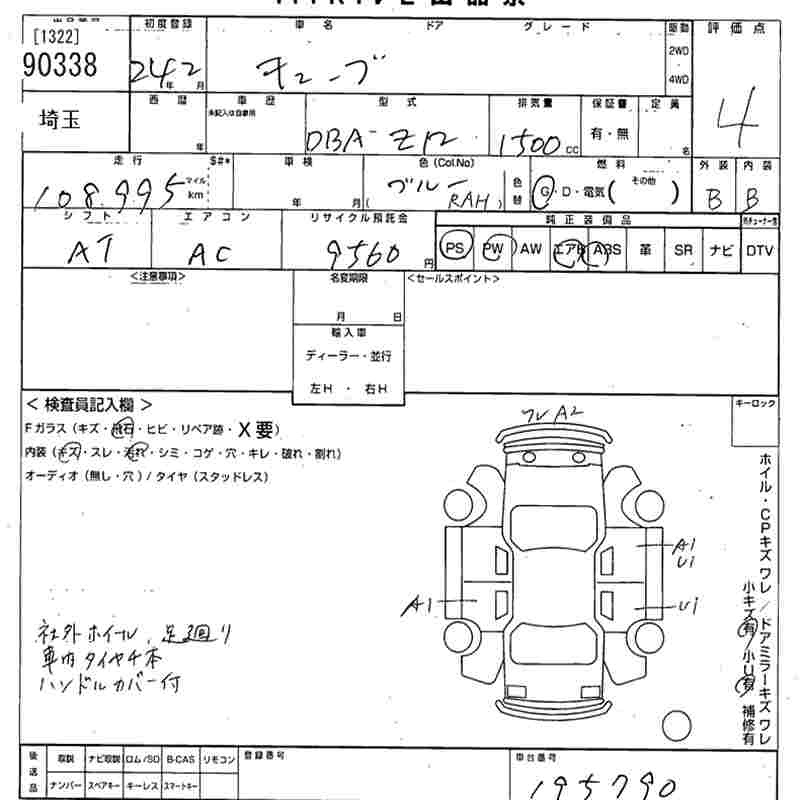 出品番号 初度登録 車名 ドア グレード 駆動 評価点
[1322]
90338 24年2月 キューブ 2WD 4WD 4
埼玉 西暦 年 車歴 未記入は自家用 型式 DBA-Z12 排気量 1500cc 保証書 有・無 定員 名
走行 108,995 マイル km $#* 車検 年 月 色(Col.No) ブルー (RAH) 色替 燃料 G・D・電気( その他 ) 外装 B 内装 B
シフト AT エアコン AC リサイクル預託金 9560円 純正装備品
PS PW AW エアB ABS 革 SR ナビ DTV
<注意事項> 名変期限 <セールスポイント>
月 日
輸入車
ディーラー・並行
左H ・ 右H
< 検査員記入欄 > キーロック
Fガラス (キズ・飛石・ヒビ・リペア跡・X要)
内装 (キズ・スレ・汚れ・シミ・コゲ・穴・キレ・破れ・割れ)
オーディオ (無し・穴) / タイヤ (スタッドレス)
ワレA2
A1
U1
A1
U1
ホイル・CPキズワレ/ドアミラーキズワレ
小キズ有 小U有 補修有
社外ホイール、足廻り
車内タイヤ4本
ハンドルカバー付
後送品 取説 ナビ取説 ロム/SD B-CAS リモコン 登録番号 車台番号
ナンバー スペアキー キーレス スマートキー 195790